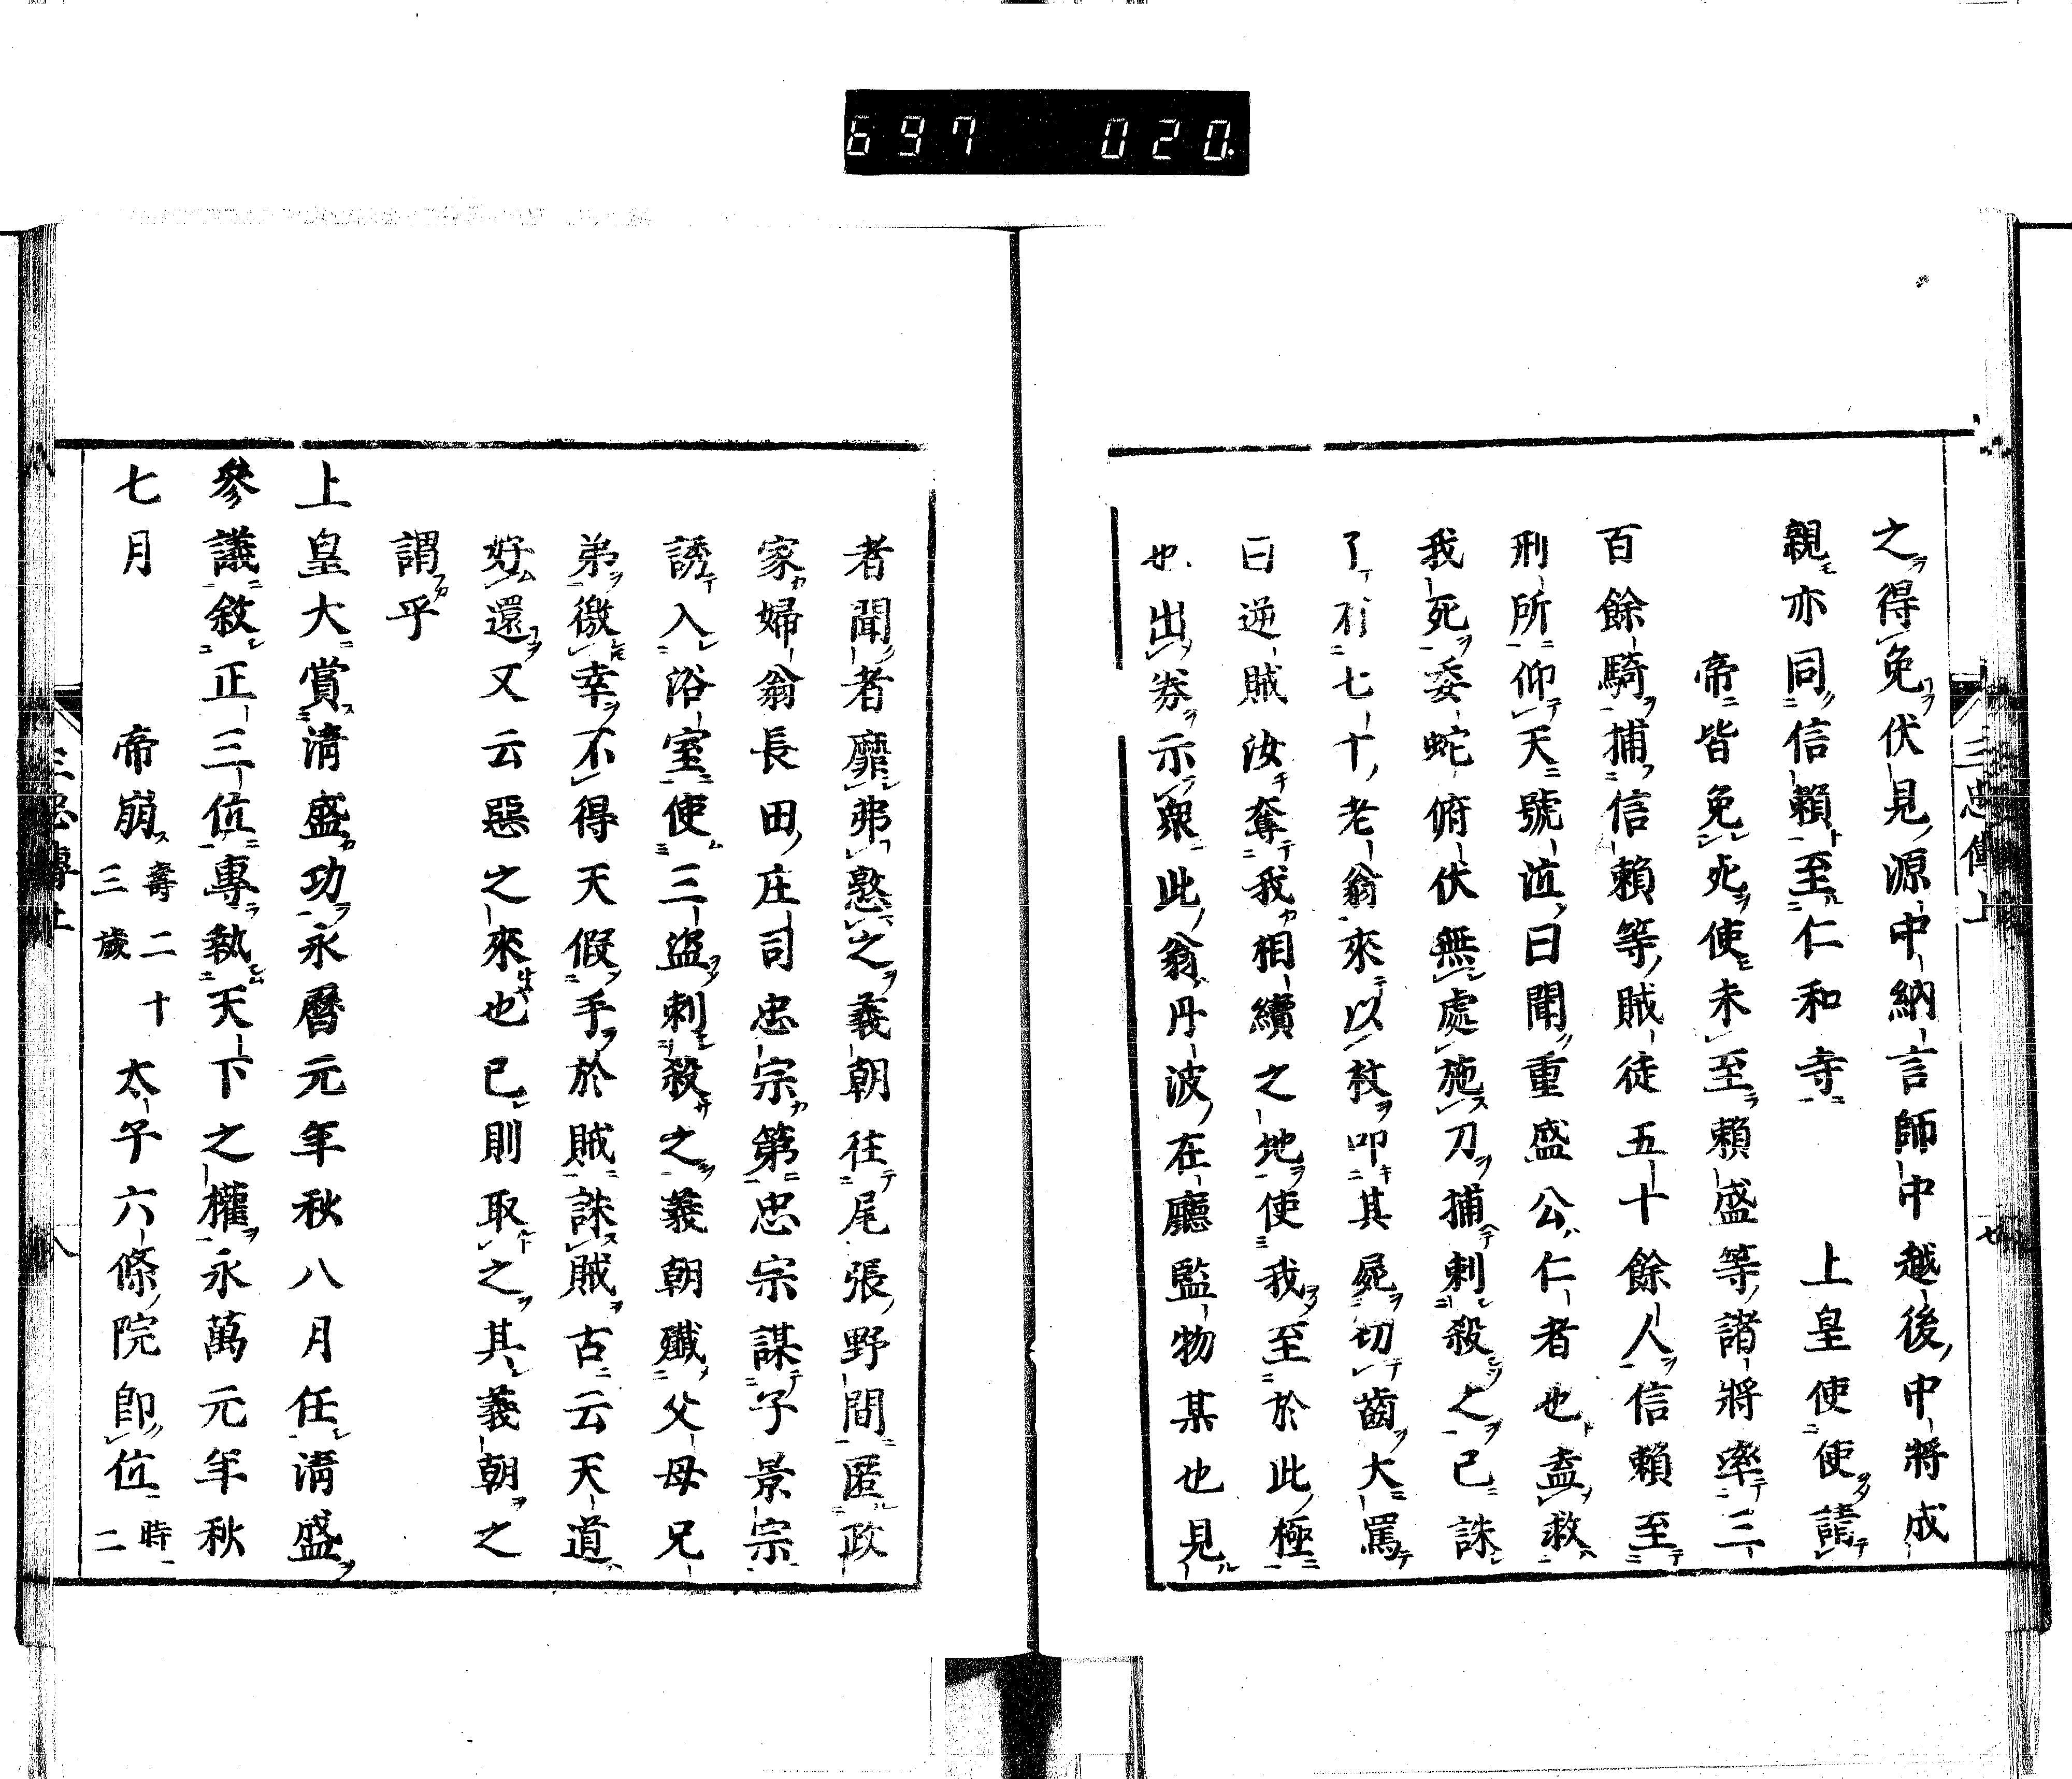 697 020
三忠傳上
廿
之得免伏見源中納言師中越後中將成
親亦同信賴至仁和寺 上皇使使請
帝皆免死使未至賴盛等諸將率三
百餘騎捕信賴等賊徒五十餘人信賴至
刑所仰天號泣曰聞重盛公仁者也盍救
我死委蛇俯伏無處施刀捕刺殺之已誅
了有七十老翁來以杖叩其屍切齒大罵
曰逆賊汝奪我相續之地使我至於此極
也出券示衆此翁丹波在廳監物某也見
者聞者靡弗愍之義朝往尾張野間匿政
家婦翁長田庄司忠宗第忠宗謀子景宗
誘入浴室使三盜刺殺之義朝殲父母兄
弟徼幸不得天假手於賊誅賊古云天道
好還又云惡之來也已則取之其義朝之
謂乎
上皇大賞清盛功永曆元年秋八月任清盛
參議敘正三位專執天下之權永萬元年秋
七月 帝崩壽二十三歲太子六條院即位時二